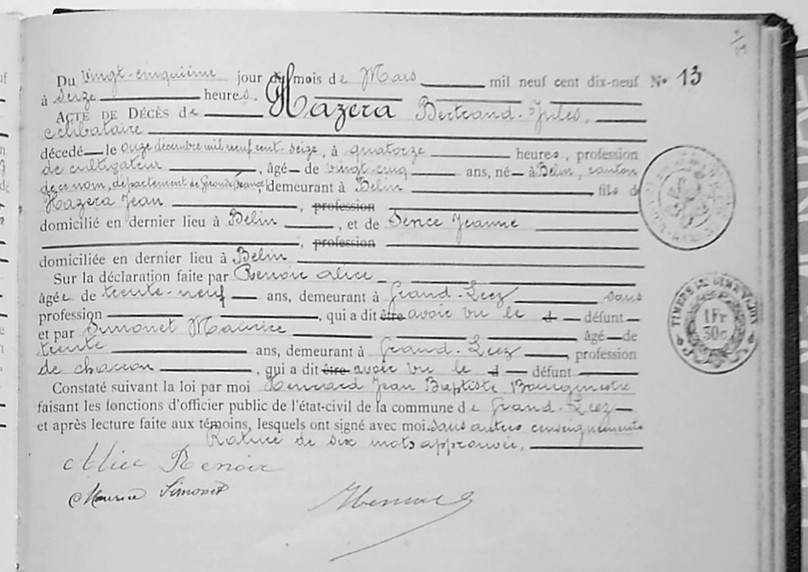 Du Vingt-cinquième jour du mois de Mars mil neuf cent dix-neuf N° 13
à Seize heures,
ACTE DE DÉCÈS de Hazera Bertrand-Jules,
célibataire
décédé le onze décembre mil neuf cent-seize, à quatorze heures, profession
de cultivateur, âgé de vingt-cinq ans, né à Belin, canton
de ce nom, département de Gironde (France) demeurant à Belin, fils de
Hazera Jean, profession
domicilié en dernier lieu à Belin, et de Sence Jeanne
, profession
domiciliée en dernier lieu à Belin
Sur la déclaration faite par Renoir Alice
âgée de trente-neuf ans, demeurant à Grand-Leez sans
profession, qui a dit être avoir vu le d défunt
et par Simonet Maurice âgé de
trente ans, demeurant à Grand-Leez, profession
de charron, qui a dit être avoir vu le d défunt
Constaté suivant la loi par moi Henrard Jean Baptiste Bourgmestre
faisant les fonctions d'officier public de l'état-civil de la commune de Grand-Leez
et après lecture faite aux témoins, lesquels ont signé avec moi. sans autres renseignements
Rature de six mots approuvée.
Alice Renoir
Maurice Simonet
TIMBRE DE DIMENSION
1Fr
30c